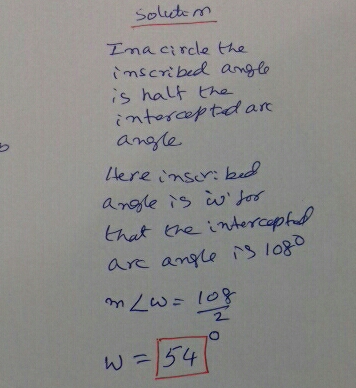 Solution
In a circle the
inscribed angle
is half the
intercepted arc
angle
Here inscribed
angle is 'w' for
that the intercepted
arc angle is 108°
m∠w = 108/2
w = 54°